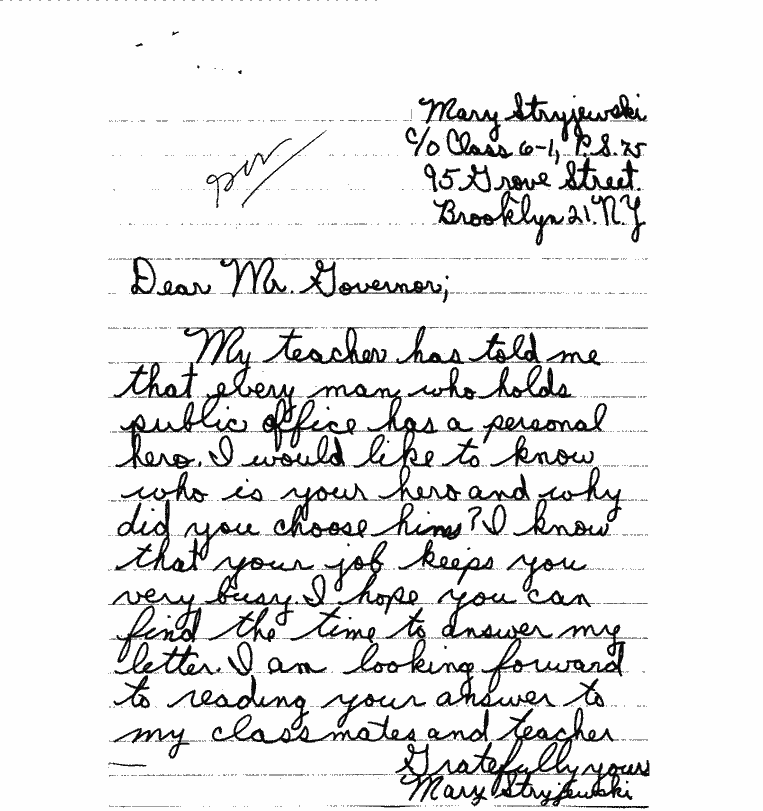 Mary Stryjewski
c/o Class 6-1, P.S. 75
95 Grove Street.
Brooklyn 21. N.Y
Dear Mr. Governor;
My teacher has told me
that every man who holds
public office has a personal
hero. I would like to know
who is your hero and why
did you choose him? I know
that your job keeps you
very busy. I hope you can
find the time to answer my
letter. I am looking forward
to reading your answer to
my classmates and teacher
Gratefully yours
Mary Stryjewski